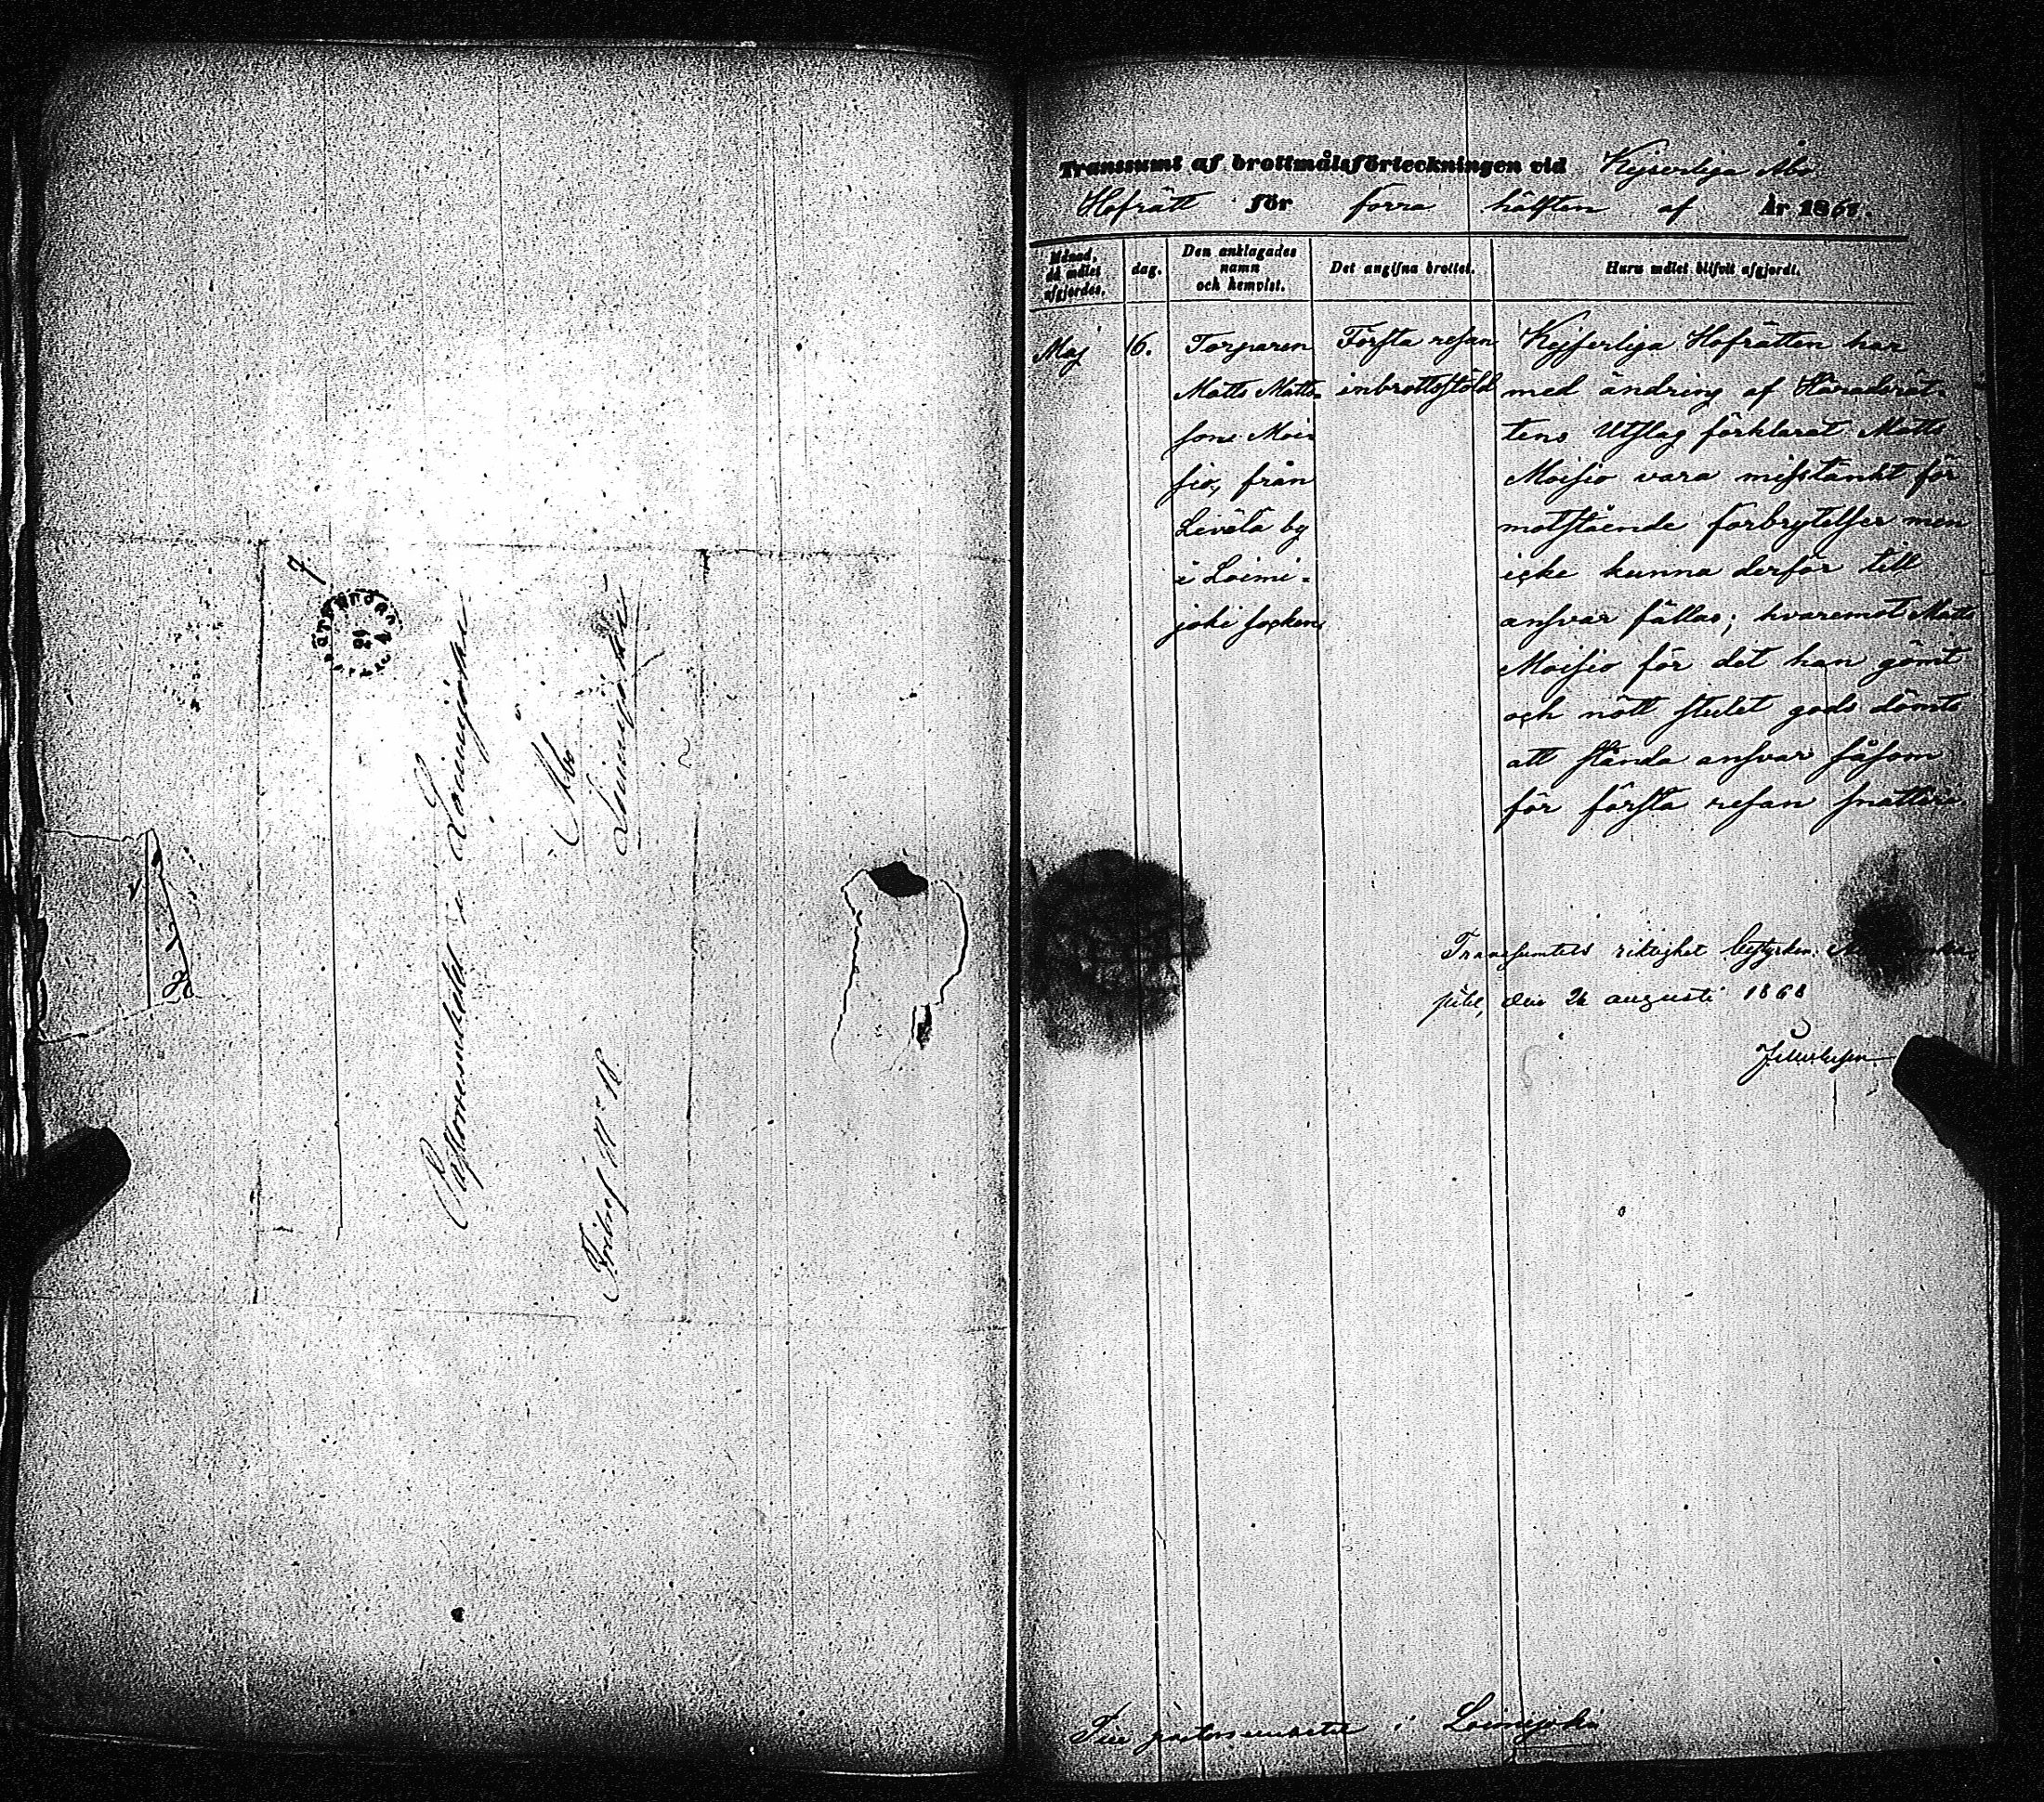 Pastorsembetet i Loimijoki
Åbo
Loimijoki
Fribref N:o 18.
Transsumt af brottmålsförteckningen vid Kejserliga Åbo
Hofrätt för förra hälften af År 1867.
Månad, då målet afgjordes.
dag.
Den anklagades namn och hemvist.
Det angifna brottet.
Huru målet blifvit afgjordt.
Maj
16.
Torparen
Matts Matts-
sons Moi-
sio, från
Levälä by
i Loimi-
joki socken,
Första resan
inbrottsstöld
Kejserliga Hofrätten har
med ändring af Häradsrät-
tens Utslag förklarat Matts
Moisio vara misstänkt för
motstående förbrytelser men
icke kunna derför till
ansvar fällas; hvaremot Matts
Moisio för det han gömt
och nött stulet gods dömts
att stånda ansvar såsom
för första resan snatteri
Transsumtets riktighet bestyrkes.
den 26 augusti 1868
Till pastorsembetet i Loimijoki